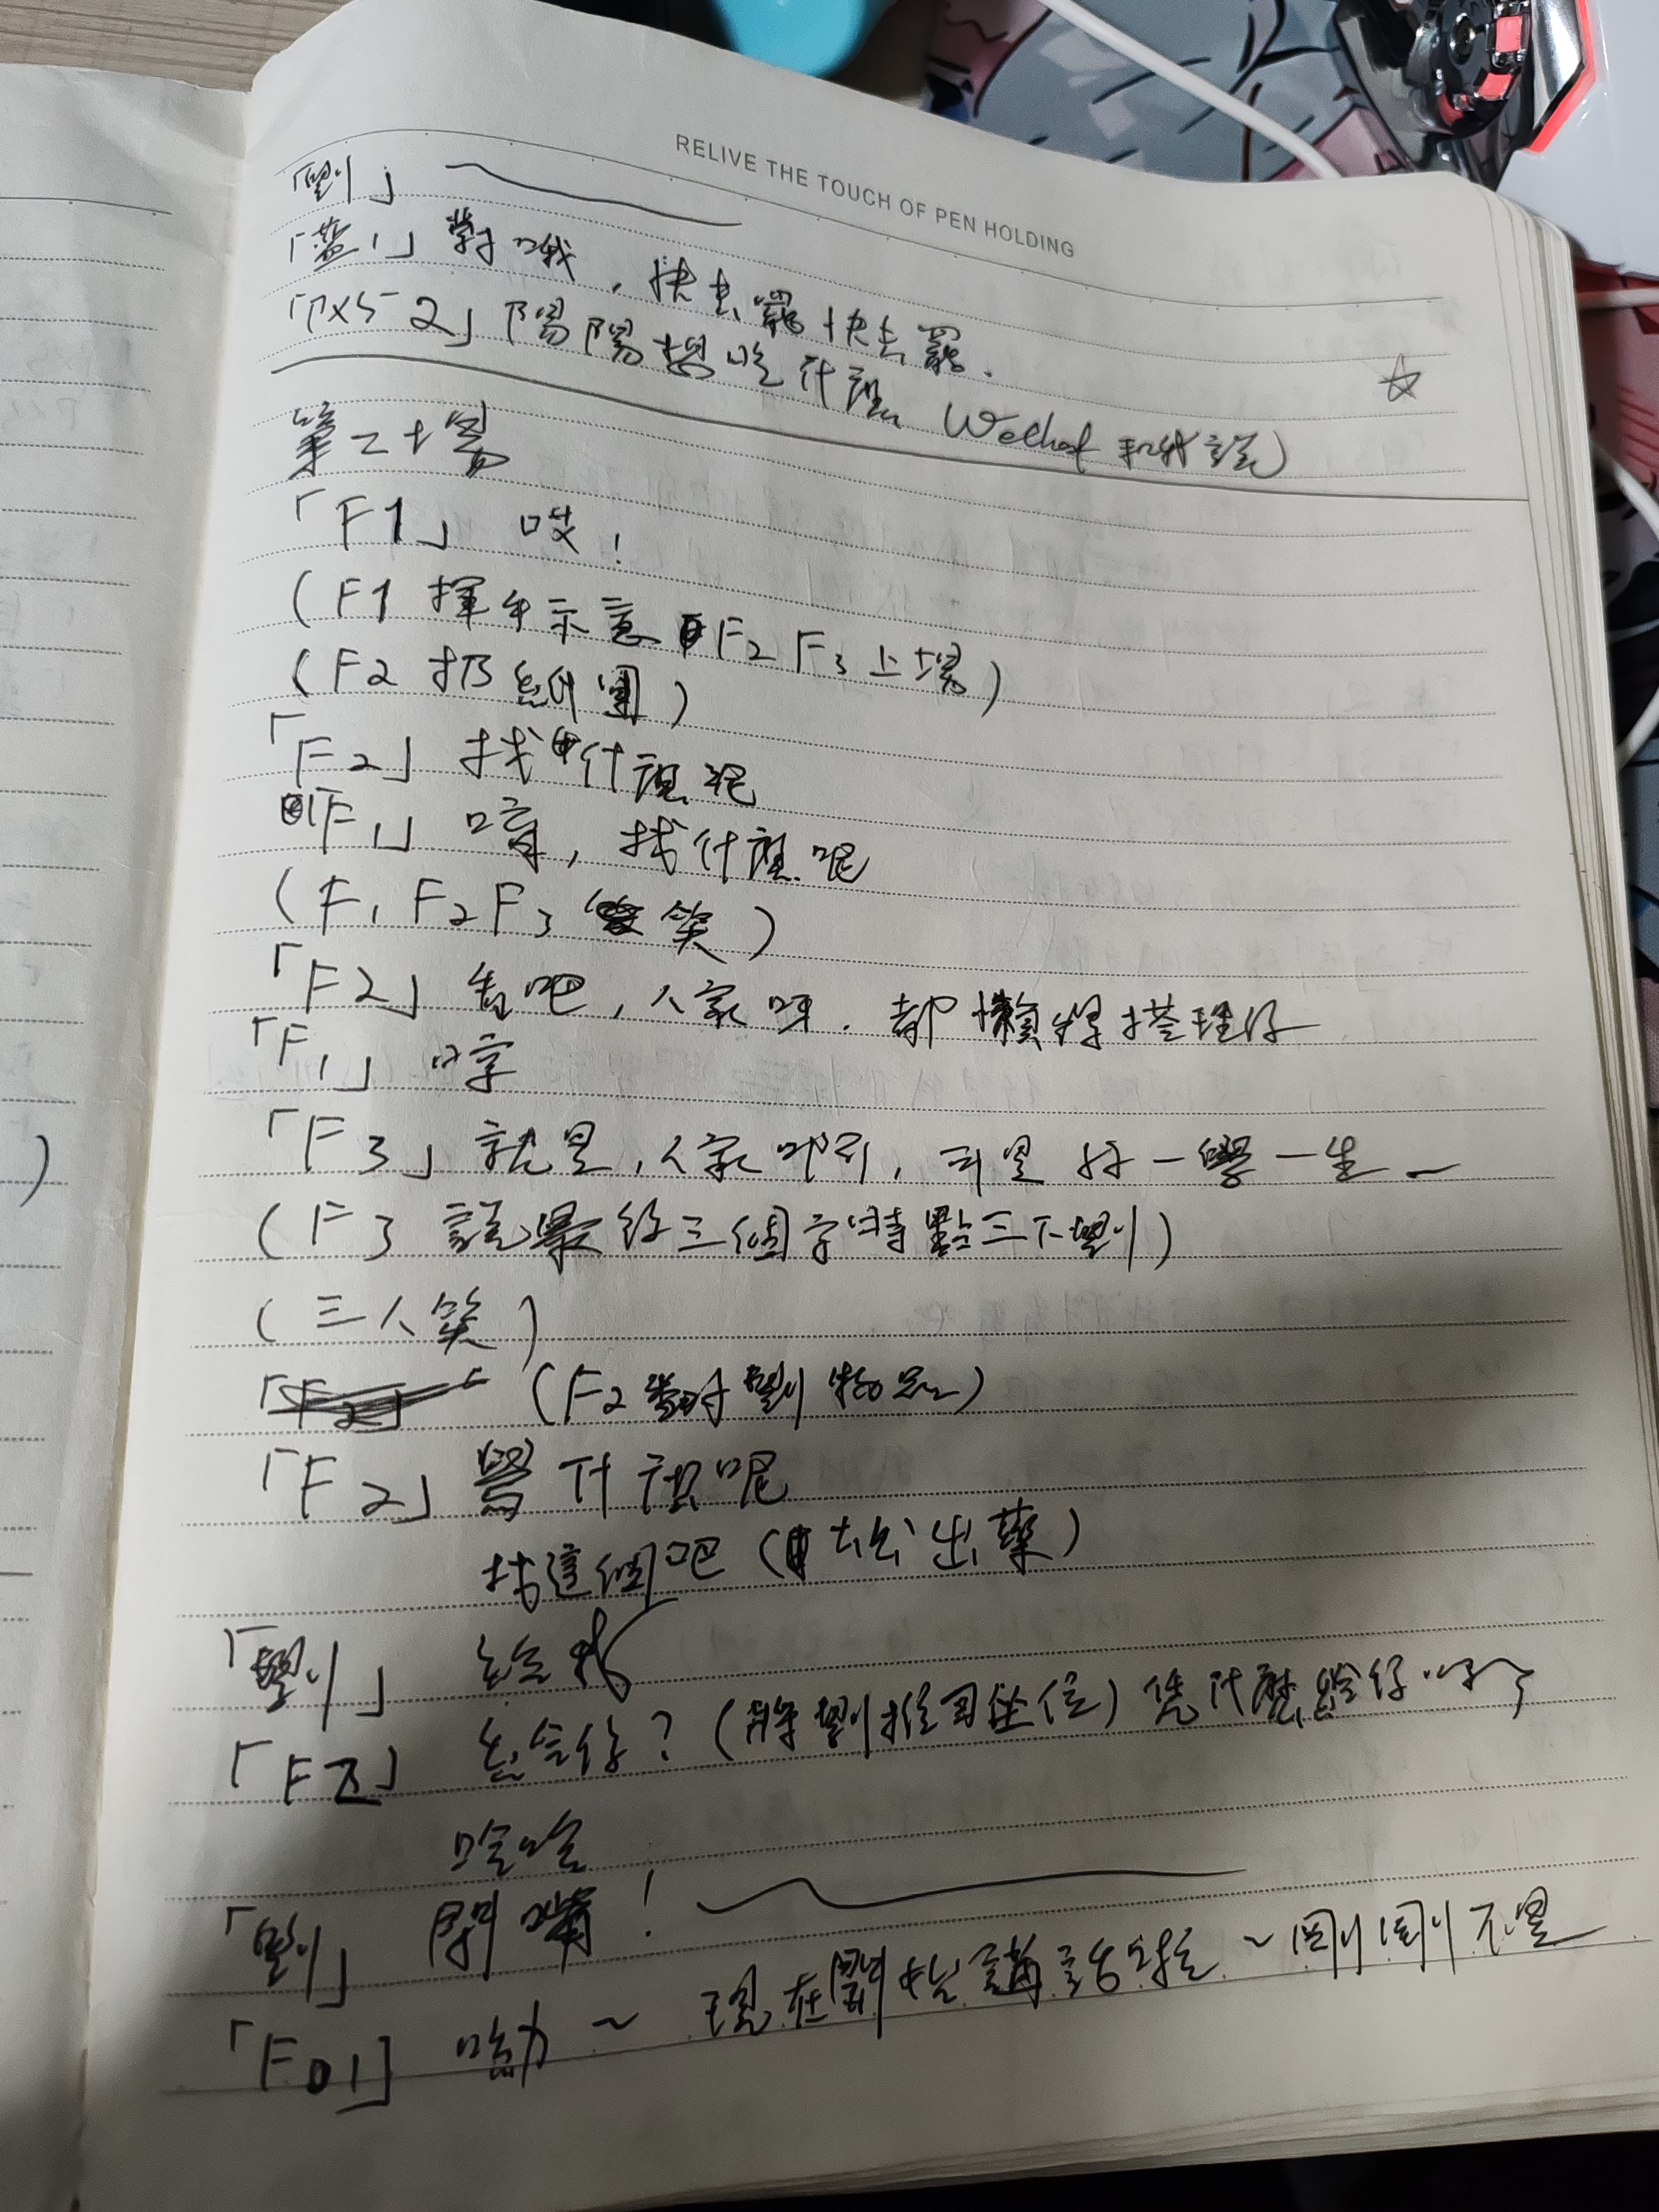 RELIVE THE TOUCH OF PEN HOLDING
「劉」
「藍1」對哦，快去罷快去罷.
2」陽陽想吃什麼 Wechat 和我說)
第二十場
「F1」 哎！
(F1 揮手示意 F2 F3 上場)
(F2 扔紙團)
「F2」 找什麼呢
「F1」 唷，找什麼呢
(F1 F2 F3 笑)
「F2」 看吧，人家呀. 都懶得搭理你
「F1」 哼
「F3」 就是，人家叻列，可是 好一學一生一
(F3 說最後三個字時點三下劉)
(三人笑)
(F2 對劉)
「F2」 找什麼呢
找這個吧 (出藥)
「劉」 給我
「F2」 給你？(將劉推回坐位) 凭什麼給你
哈哈
「劉」 閉嘴！
「F1」 喲～ 現在開始講話啦～剛剛不是